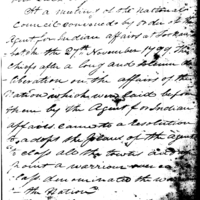 At a meeting of the National
Council convened by order of the
Agent for Indian affairs at
the 27th November 1799, the
chiefs after a long and solemn
liberation on the affairs of the
Nation which were laid before
them by the Agent for Indian
affairs came to a resolution
to adopt the plan of the agent
to class all the towns and
point a warrior over each
class denominated the
the Nation